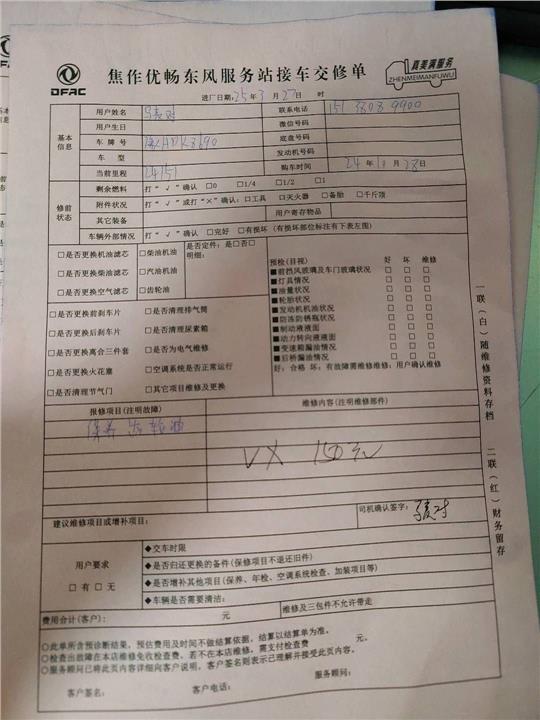 DFAC
焦作优畅东风服务站接车交修单
真美满服务
ZHENMEIMANFUWU
进厂日期:25年3月27日 时
基本信息
用户姓名 联系电话 151 3808 9900
用户生日 微信号码
车牌号 底盘号码
车型 发动机号码
当前里程 24151 购车时间 24年10月28日
修前状态
剩余燃料 打“√”确认 □0 □1/4 □1/2 □1
附件状况 打“√”或打“×”确认:□工具 □灭火器 □备胎 □千斤顶
其它装备 用户寄存物品
车辆外部情况 打“√”确认 □完好 □有损坏(有损坏部位标注有下表左图)
□是否更换机油滤芯 □柴油机油
□是否更换柴油滤芯 □汽油机油
□是否更换空气滤芯 □齿轮油
是否定件:是□否□
明细:
□是否更换前刹车片 □是否清理排气筒
□是否更换后刹车片 □是否清理尿素箱
□是否更换离合三件套 □是否为电气维修
□是否更换火花塞 □空调系统是否正常运行
□是否清理节气门 □其它项目维修及更换
预检(目视) 好 坏 维修
■前挡风玻璃及车门玻璃状况 □ □ □
■灯具情况 □ □ □
■油量状况 □ □ □
■轮胎状况 □ □ □
■发动机机油状况 □ □ □
■防冻防锈瓶状况 □ □ □
■制动液液面 □ □ □
■动力转向液液面 □ □ □
■变速箱漏油情况 □ □ □
■后桥漏油情况 □ □ □
好:合格 坏:有故障需维修维修:用户确认维修
报修项目(注明故障) 维修内容(注明维修部件)
保养 齿轮油
VX 150元
建议维修项目或增补项目:
司机确认签字:
用户要求
□有□无
◆交车时限
◆是否归还更换的备件(保修项目不退还旧件)
◆是否增补其他项目(保养、年检、空调系统检查、加装项目等)
◆车辆是否需要清洁:
费用合计(客户): 元 维修及三包件不允许带走
○此单所含预诊断结果,预估费用及时间不做结算依据,结算以结算单为准。
○检查出故障在本店维修免收检查费、若不在本店维修,需支付检查费 元。
○服务顾问已将此页内容详细向客户说明,客户签名则表示已理解并接受此页内容。
服务顾问:
客户签名: 客户电话:
一联(白)随维修资料存档
二联(红)财务留存